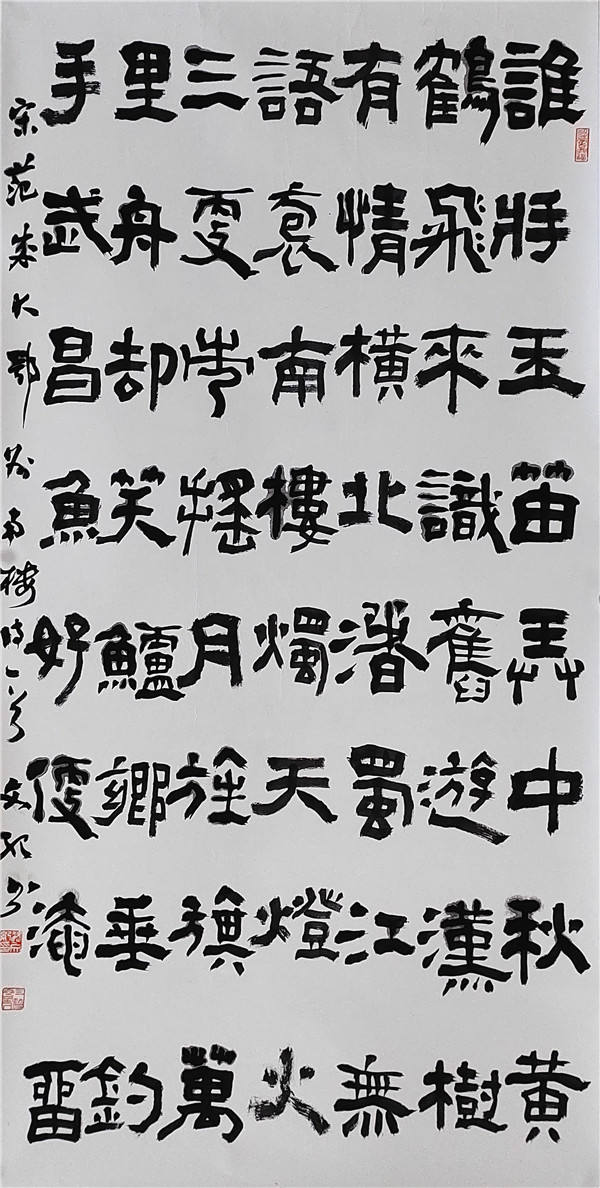 誰將玉笛弄中秋黄
鶴飛來識舊遊漢樹
有情橫北渚蜀江無
語袌南樓燭天燈火
三更市搖月旌旗萬
里舟却笑鱸鄉垂釣
手武昌魚好便淹留
宋范成大鄂州南樓詩一首 文